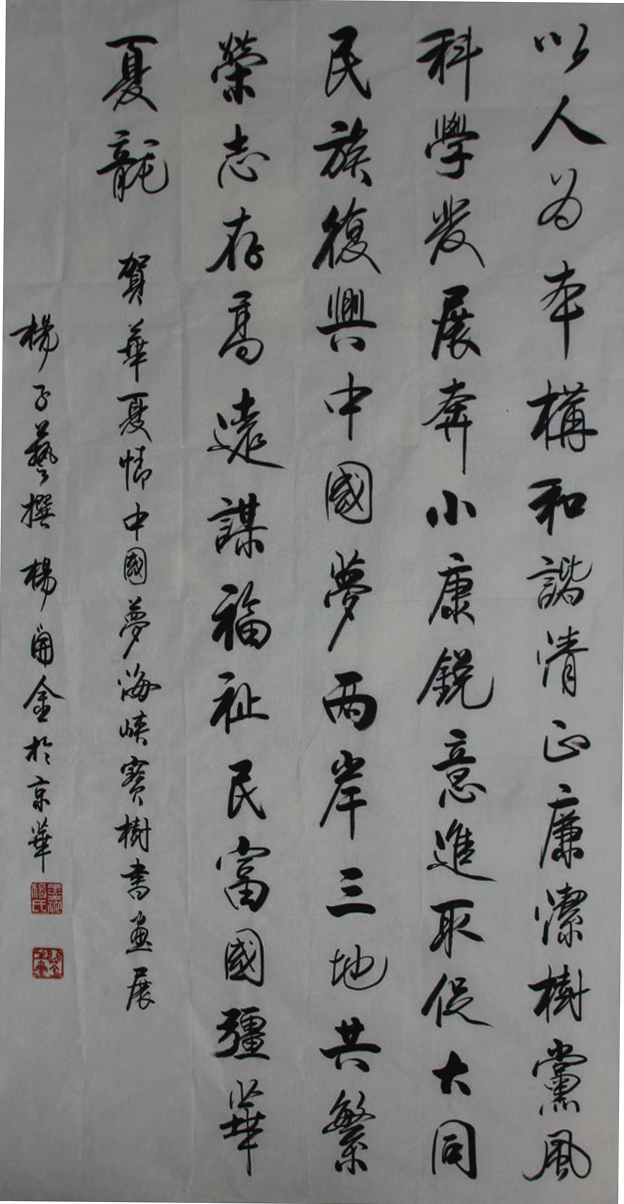 以人為本構和諧清正廉潔樹黨風
科學發展奔小康銳意進取促大同
民族復興中國夢两岸三地共繁
榮志存高遠謀福祉民富國彊華
夏龍 賀華夏情中國夢海峽寶樹書畫展
楊子藝撰楊開金於京華